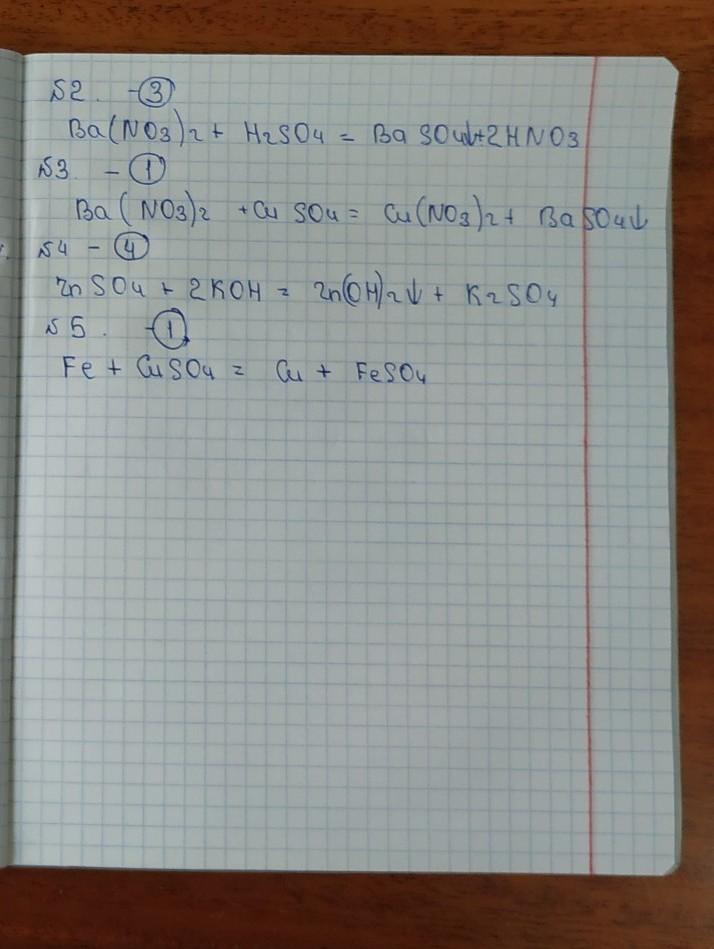 №2. -③
Ba(NO3)2 + H2SO4 = BaSO4↓+2HNO3
№3. - ①
Ba(NO3)2 + CuSO4 = Cu(NO3)2 + BaSO4↓
№4 - ④
ZnSO4 + 2KOH = Zn(OH)2↓ + K2SO4
№5. -①
Fe + CuSO4 = Cu + FeSO4